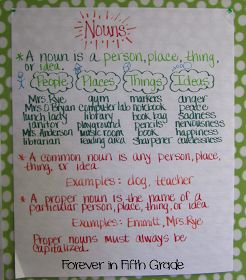 Nouns
* A noun is a person, place, thing,
or idea.
People Places Things Ideas
Mrs. Rye gym markers anger
Mrs. O'Bryan computer lab notebook peace
lunch lady library book bag sadness
janitor playground pencils nervousness
Mrs. Anderson music room book happiness
librarian reading area sharpener calmness
* A common noun is any person, place,
thing, or idea.
Examples: dog, teacher
* A proper noun is the name of a
particular person, place, thing, or idea.
Examples: Emmitt, Mrs. Rye
Proper nouns must always be
capitalized.
Forever in Fifth Grade